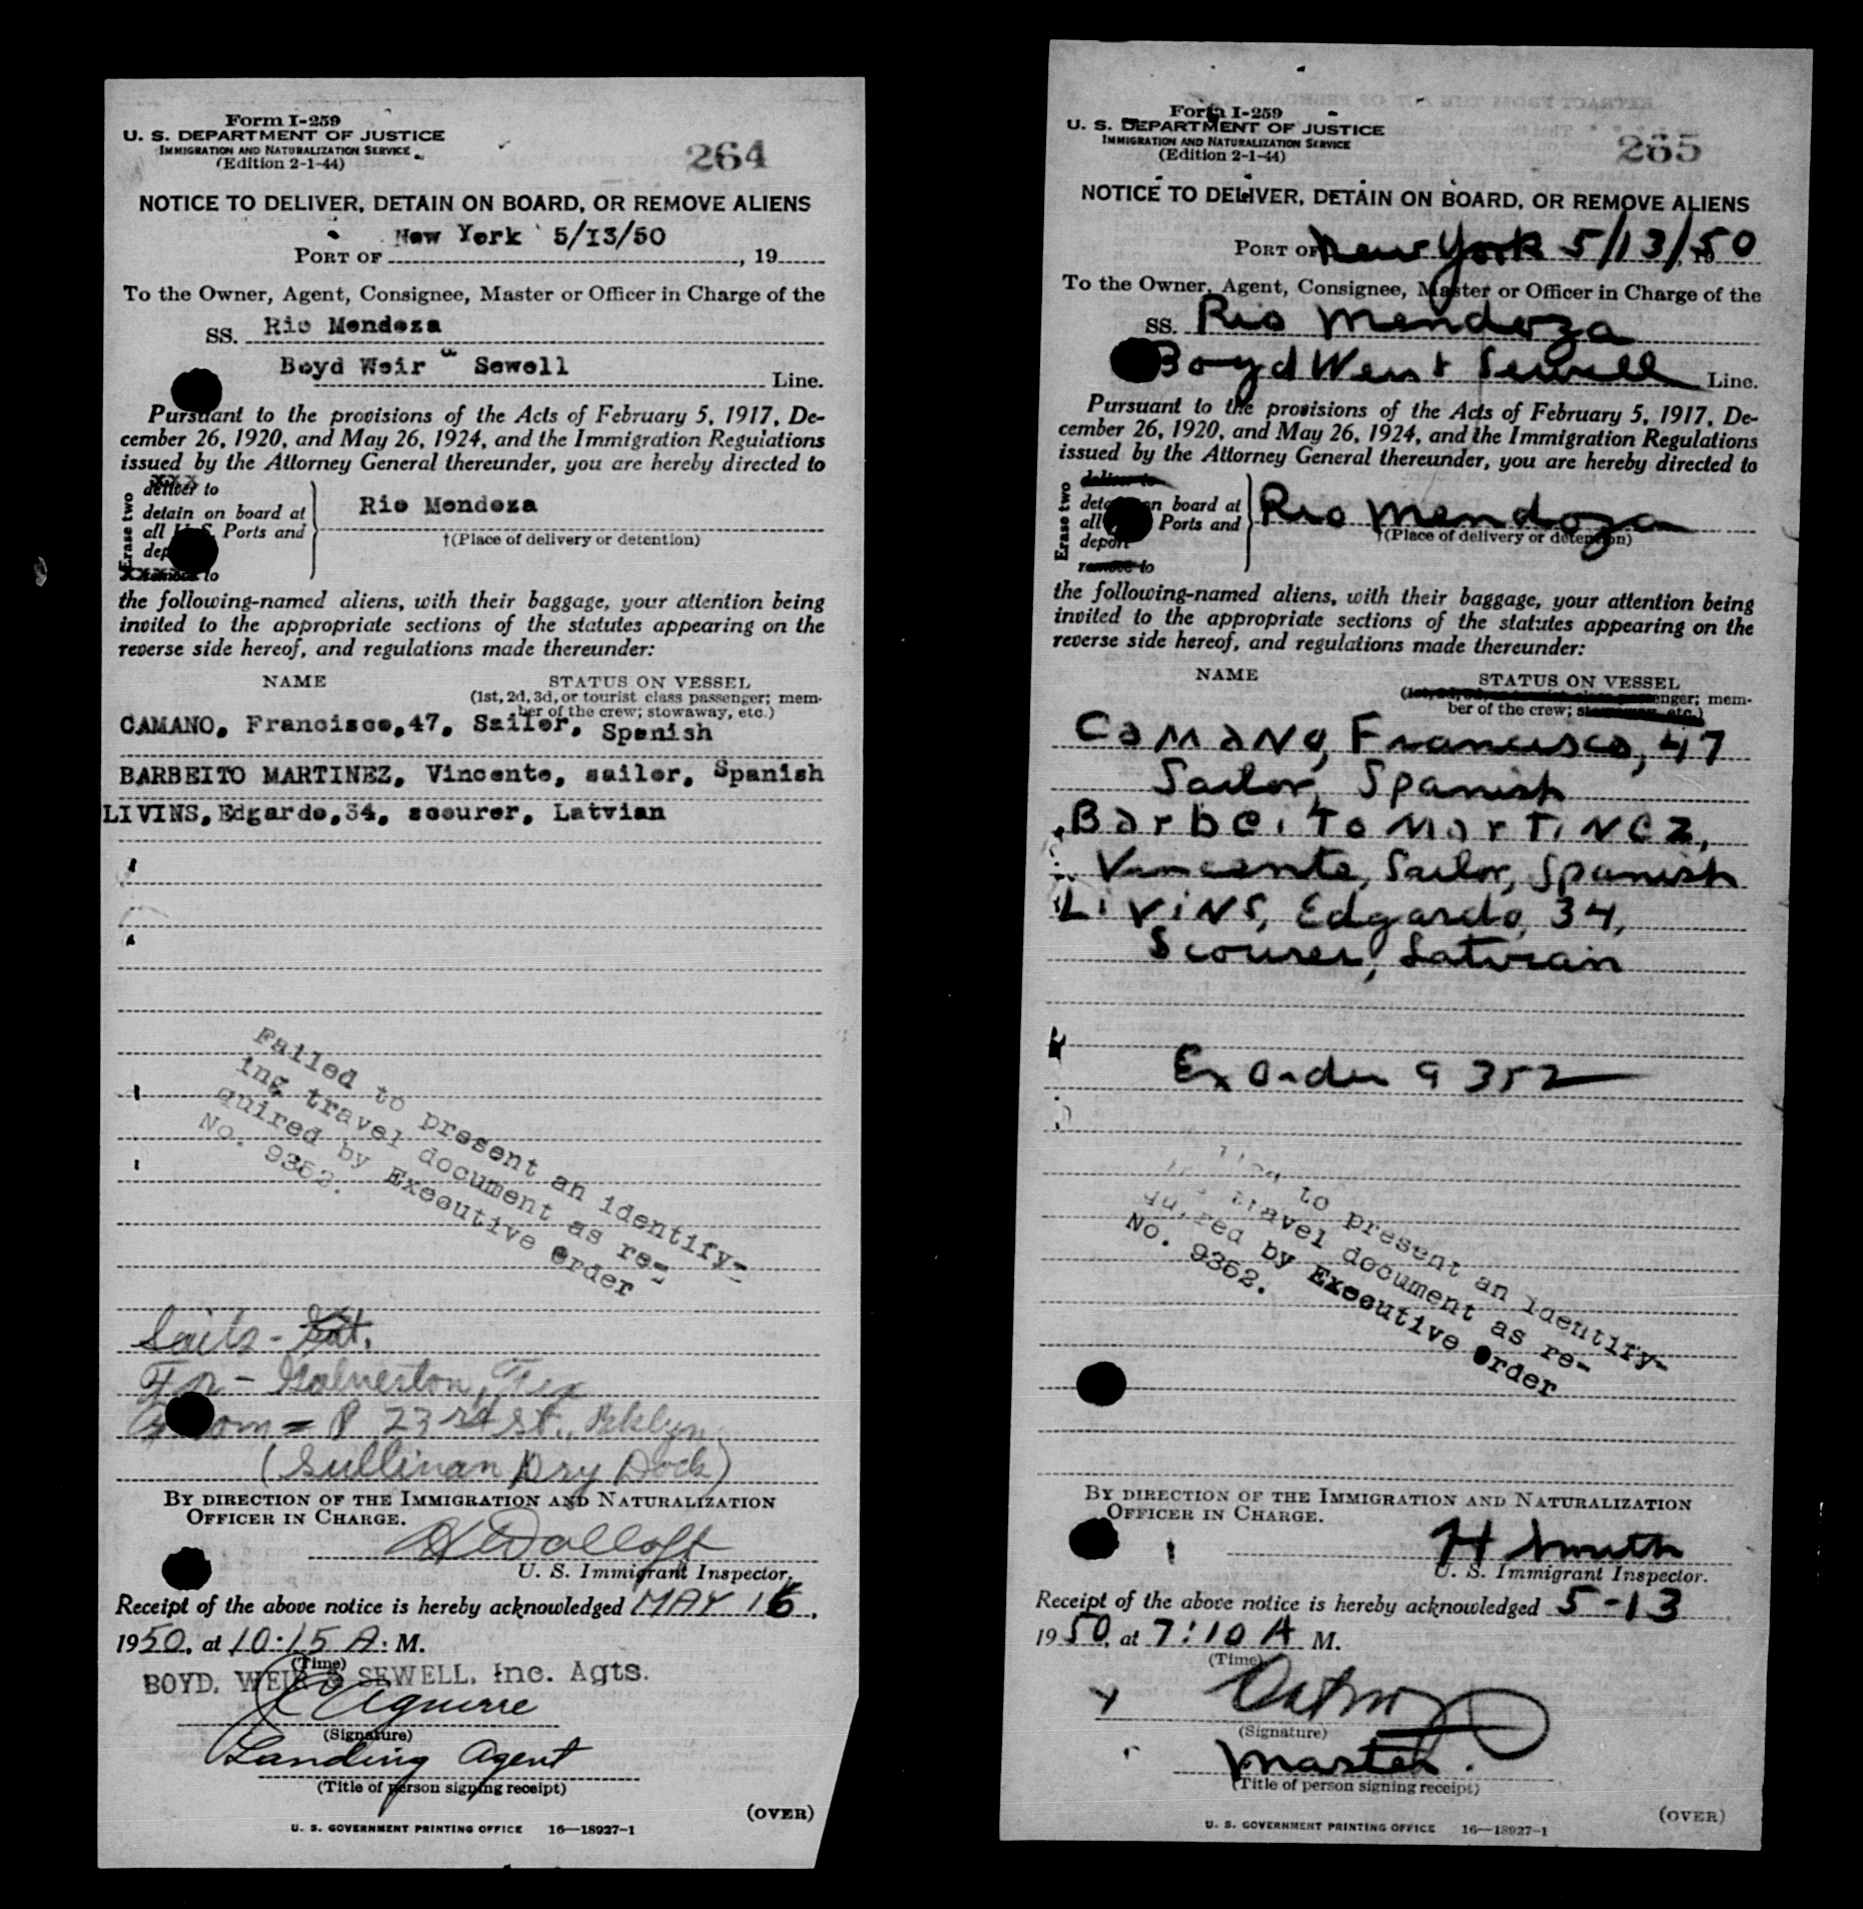 Form I-259
U. S. DEPARTMENT OF JUSTICE
IMMIGRATION AND NATURALIZATION SERVICE
(Edition 2-1-44)
264
NOTICE TO DELIVER, DETAIN ON BOARD, OR REMOVE ALIENS
New York 5/13/50
PORT OF , 19
To the Owner, Agent, Consignee, Master or Officer in Charge of the
SS. Rio Mendoza
Boyd Weir & Sewell Line.
Pursuant to the provisions of the Acts of February 5, 1917, De-
cember 26, 1920, and May 26, 1924, and the Immigration Regulations
issued by the Attorney General thereunder, you are hereby directed to
Erase two
deliver to
detain on board at
all U.S. Ports and
dep
remove to
Rio Mendoza
†(Place of delivery or detention)
the following-named aliens, with their baggage, your attention being
invited to the appropriate sections of the statutes appearing on the
reverse side hereof, and regulations made thereunder:
NAME STATUS ON VESSEL
(1st, 2d, 3d, or tourist class passenger; mem-
ber of the crew; stowaway, etc.)
CAMANO, Francisco,47, Sailer, Spanish
BARBEITO MARTINEZ, Vincente, sailor, Spanish
LIVINS, Edgardo,34, scourer, Latvian
Failed to present an identify-
ing travel document as re-
quired by Executive Order
No. 9352.
Sails - Sat.
For - Galveston, Tex
From = P 23rd St., Bklyn
(Sullivan Dry Dock)
BY DIRECTION OF THE IMMIGRATION AND NATURALIZATION
OFFICER IN CHARGE.
U. S. Immigrant Inspector.
Receipt of the above notice is hereby acknowledged MAY 16,
1950, at 10:15 A. M.
(Time)
BOYD, WEIR & SEWELL, Inc. Agts.
Aguirre
(Signature)
Landing Agent
(Title of person signing receipt)
(OVER)
U. S. GOVERNMENT PRINTING OFFICE 16—18927-1
Form I-259
U. S. DEPARTMENT OF JUSTICE
IMMIGRATION AND NATURALIZATION SERVICE
(Edition 2-1-44)
265
NOTICE TO DELIVER, DETAIN ON BOARD, OR REMOVE ALIENS
PORT OF New York 5/13/, 1950
To the Owner, Agent, Consignee, Master or Officer in Charge of the
SS. Rio Mendoza
Boyd Weir & Sewell Line.
Pursuant to the provisions of the Acts of February 5, 1917, De-
cember 26, 1920, and May 26, 1924, and the Immigration Regulations
issued by the Attorney General thereunder, you are hereby directed to
Erase two
deliver to
detain on board at
all Ports and
deport
remove to
Rio Mendoza
†(Place of delivery or detention)
the following-named aliens, with their baggage, your attention being
invited to the appropriate sections of the statutes appearing on the
reverse side hereof, and regulations made thereunder:
NAME STATUS ON VESSEL
(1st, 2d, 3d, or tourist class passenger; mem-
ber of the crew; stowaway, etc.)
Camano, Francisco, 47
Sailor, Spanish
Barbeito Martinez,
Vincente, Sailor, Spanish
Livins, Edgardo, 34,
Scourer, Latvian
Ex Order 9352
to present an identify-
travel document as re-
quired by Executive Order
No. 9352.
BY DIRECTION OF THE IMMIGRATION AND NATURALIZATION
OFFICER IN CHARGE.
H Smith
U. S. Immigrant Inspector.
Receipt of the above notice is hereby acknowledged 5-13
1950, at 7:10 A M.
(Time)
(Signature)
Master.
(Title of person signing receipt)
(OVER)
U. S. GOVERNMENT PRINTING OFFICE 16—18927-1